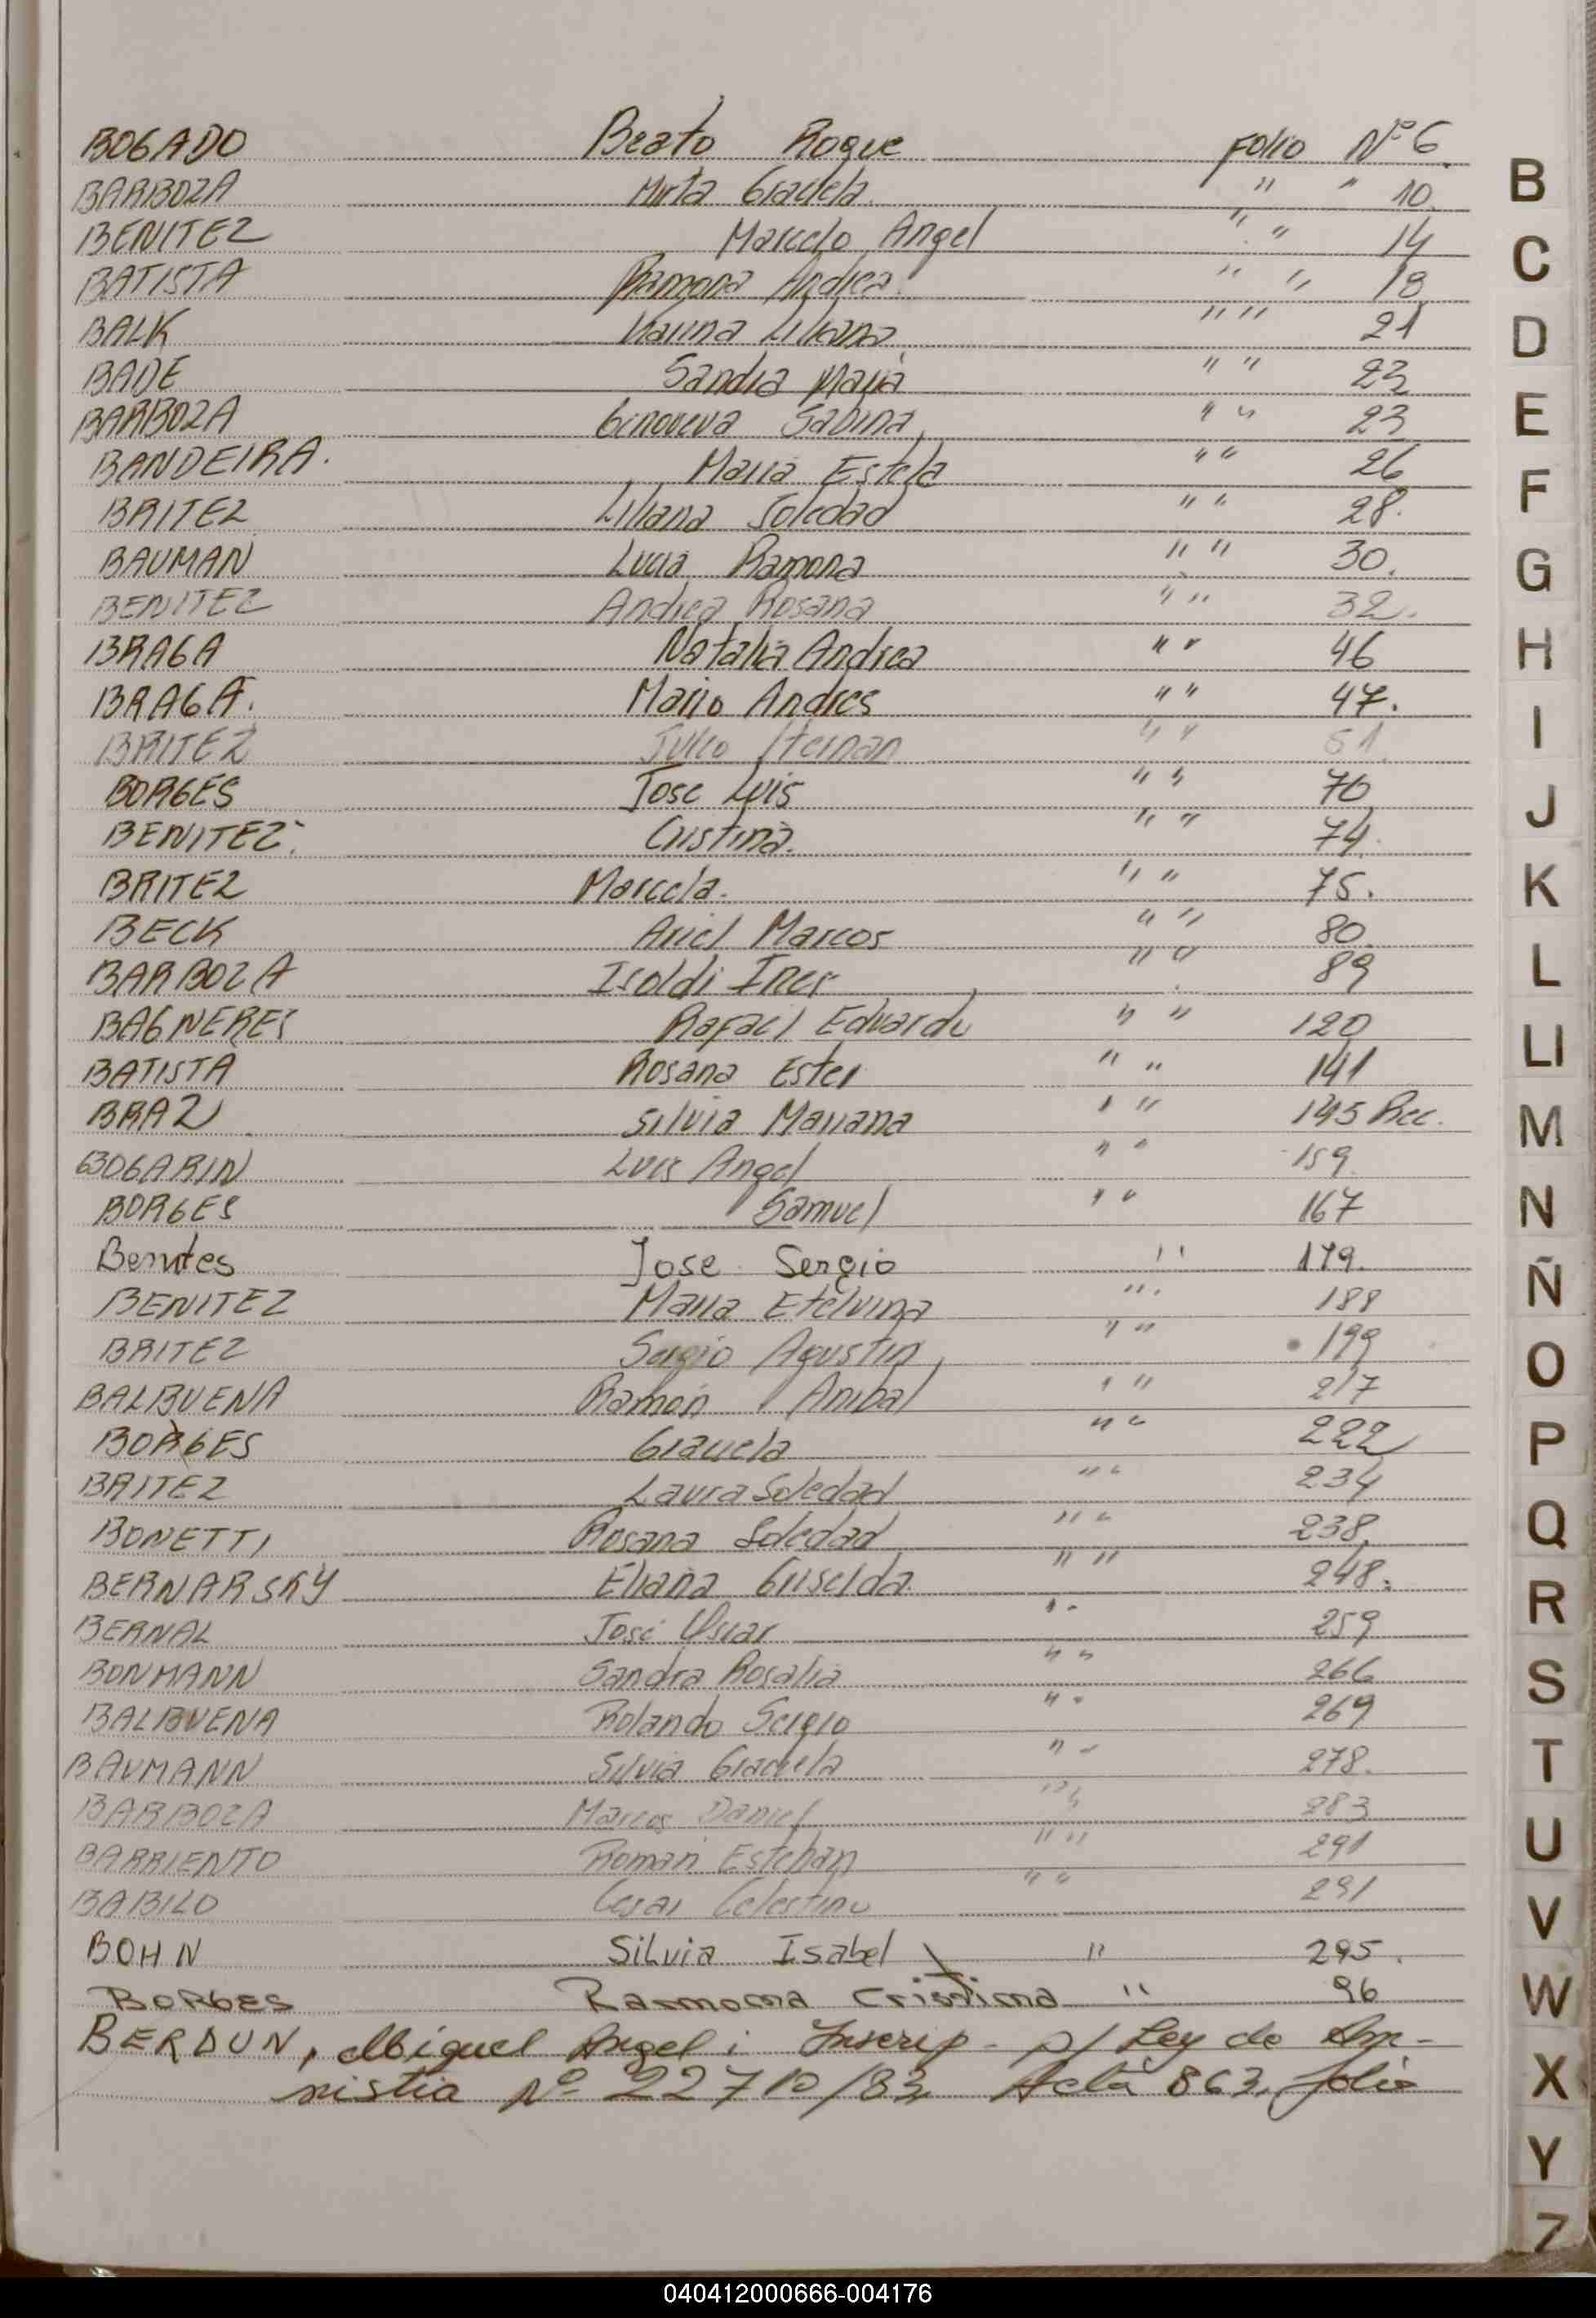 BOGADO Beato Roque Folio Nº 6.
BARBOZA Mirta Graciela. " " 10.
BENITEZ Marcelo Angel " " 14
BATISTA Ramona Andrea. " " 18
BALK Karina Liliana " " 21
BADE Sandra Maria " " 23
BARBOZA Genoveva Sabina " " 23
BANDEIRA. Maria Estela " " 26
BRITEZ Liliana Soledad " " 28.
BAUMAN Lucia Ramona " " 30.
BENITEZ Andrea Rosana " " 32.
BRAGA Natalia Andrea " " 46
BRAGA. Mario Andres " " 47.
BRITEZ Julio Hernan " " 61.
BORGES Jose Luis " " 70
BENITEZ. Cristina. " " 74.
BRITEZ Marcela. " " 75.
BECK Ariel Marcos " " 80.
BARBOZA Isoldi Ines " " 89
BAGNERES Rafael Eduardo " " 120
BATISTA Rosana Ester " " 141
BRAZ Silvia Mariana " " 145 Rec.
BOGARIN Luis Angel " " 159.
BORGES Samuel " " 167
Benites Jose Sergio " 179.
BENITEZ Maria Etelvina " " 188
BRITEZ Sergio Agustin " " 199
BALBUENA Ramon Anibal " " 217
BORGES Graciela " " 222
BRITEZ Laura Soledad " " 234
BONETTI Rosana Soledad " " 238.
BERNARSKY Eliana Griselda " " 248.
BERNAL José Oscar " " 259
BONMANN Sandra Rosalia " " 266
BALBUENA Rolando Sergio " " 269
BAUMANN Silvia Graciela " " 278.
BARBOZA Marcos Daniel " " 283
BARRIENTO Roman Esteban " " 291
BABILO Cesar Celestino " " 291
BOHN Silvia Isabel " 295.
BORGES Ramona Cristina " 96
BERDUN, Miguel Angel; Inscrip. p/ Ley de Am-
nistia Nº 22710/83 Acta 863, folio
B
C
D
E
F
G
H
I
J
K
L
Ll
M
N
Ñ
O
P
Q
R
S
T
U
V
W
X
Y
Z
040412000666-004176